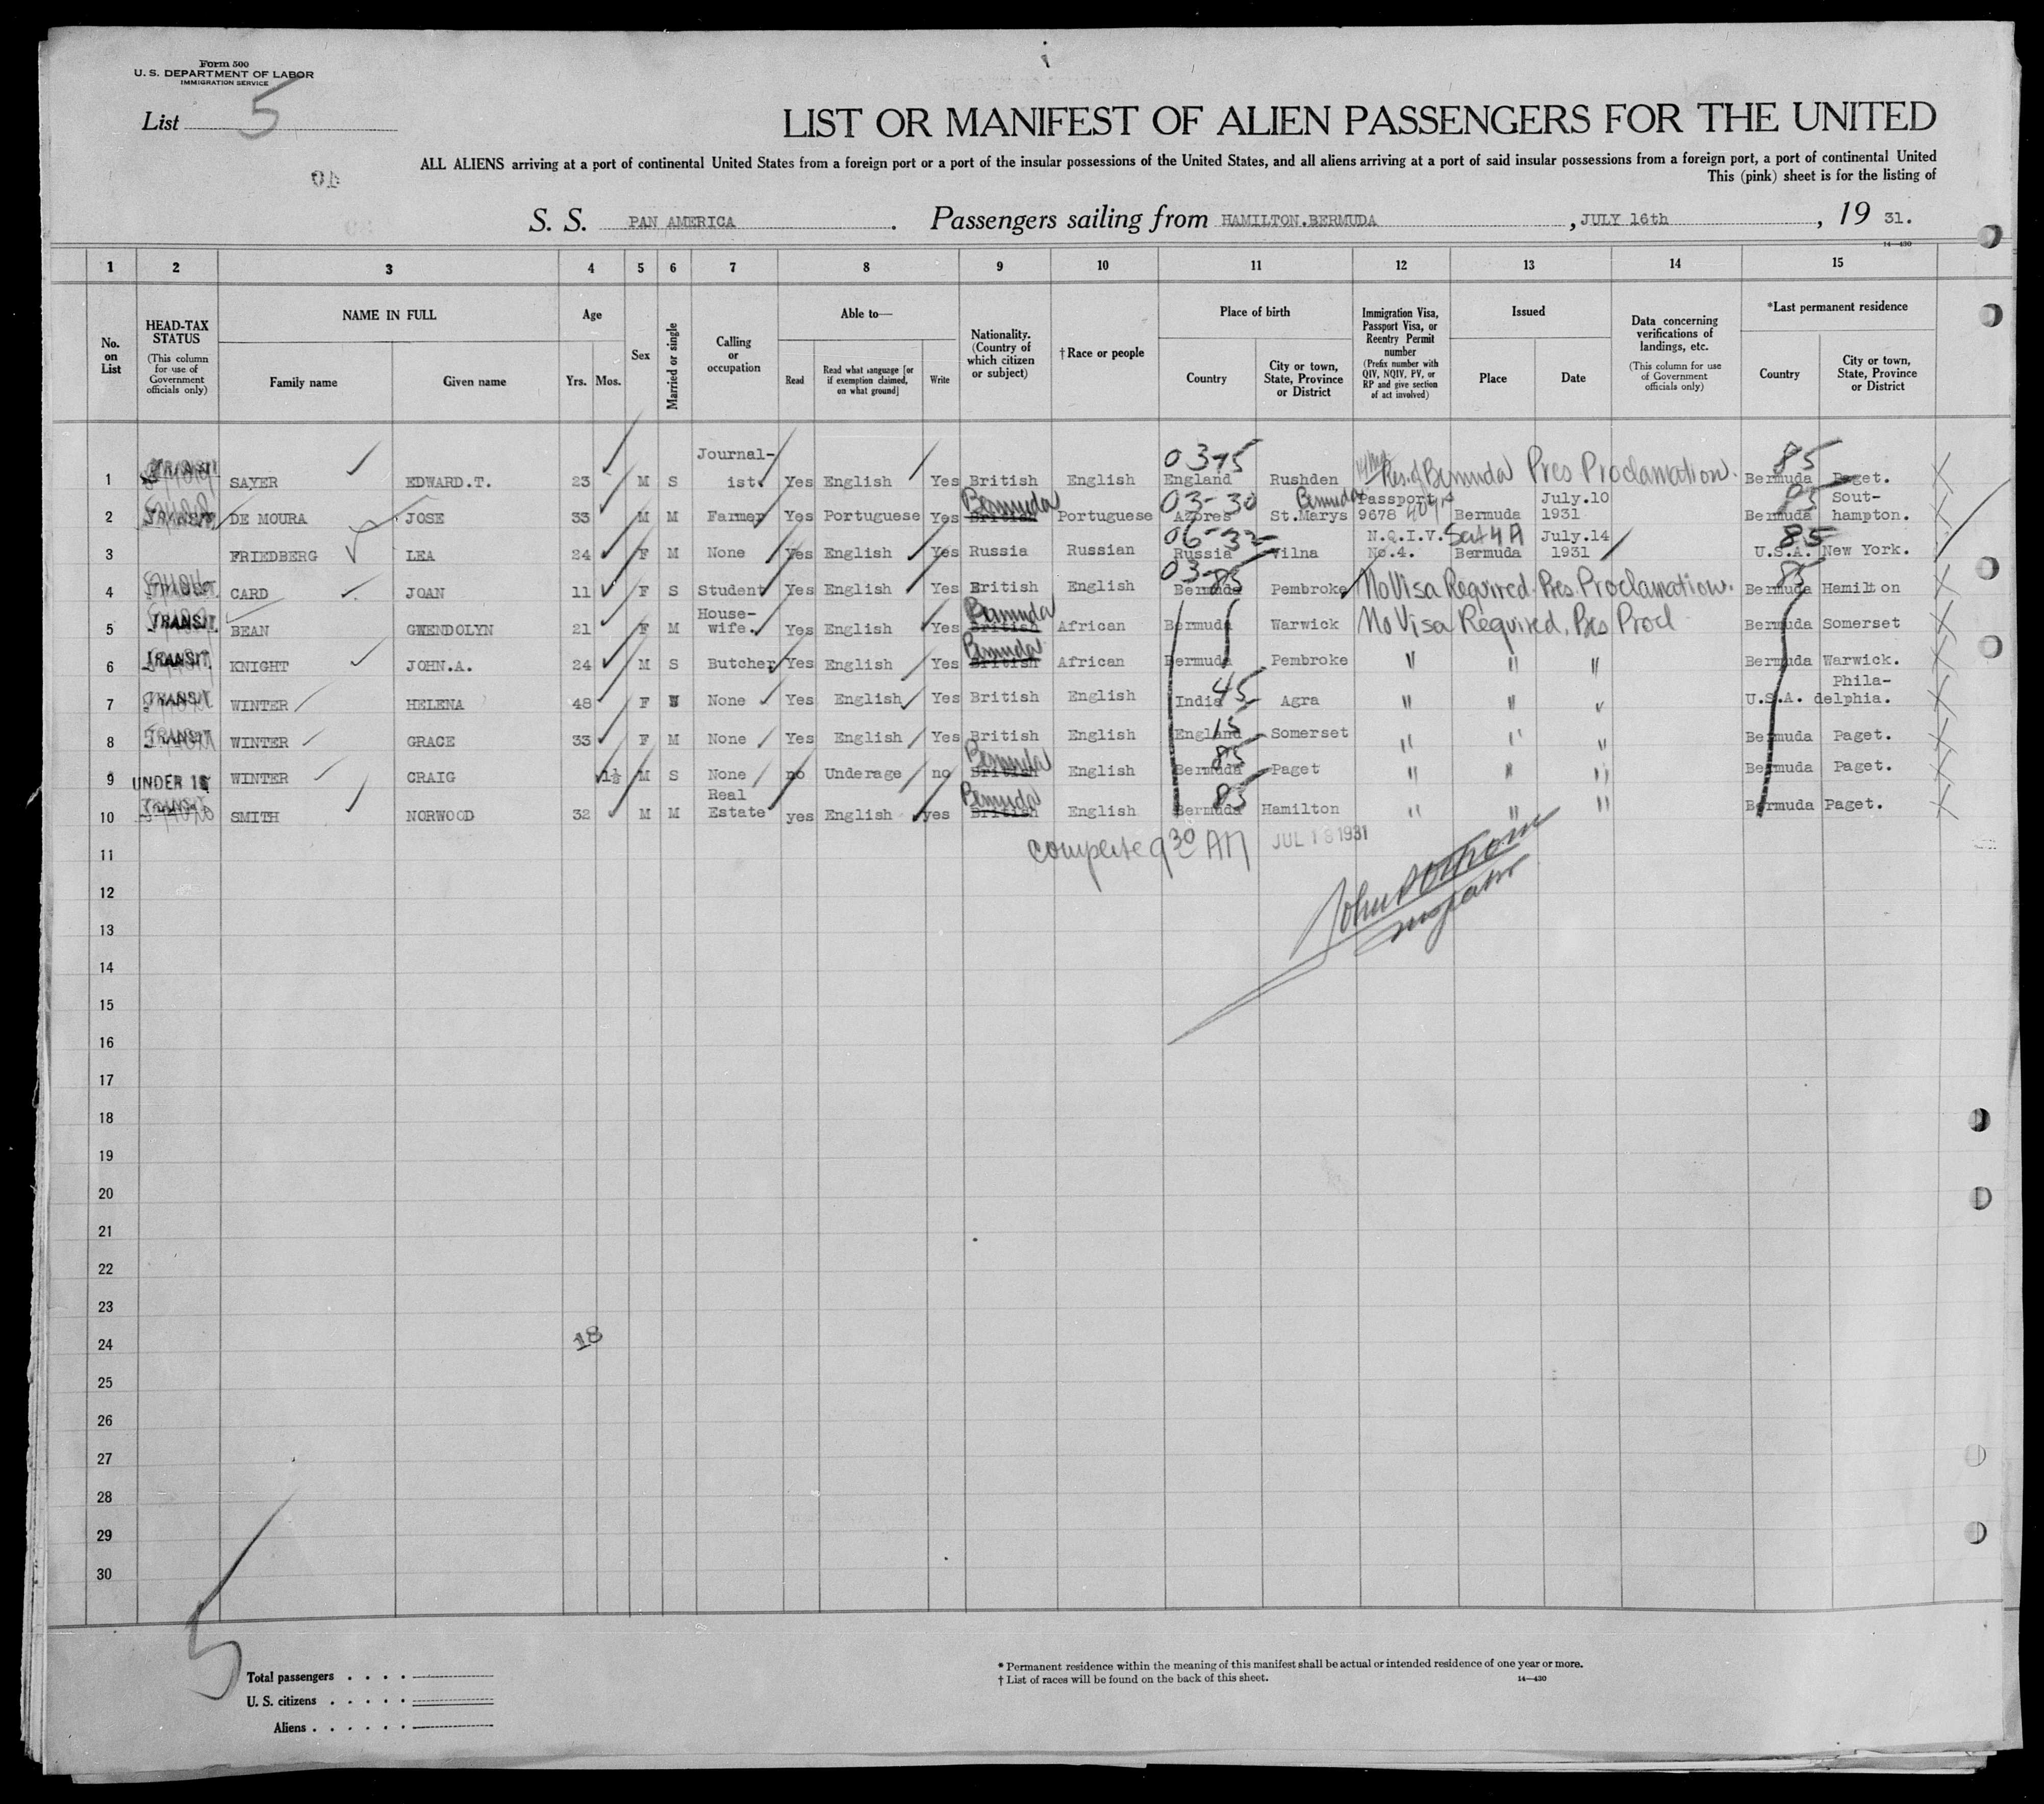 Form 500
U. S. DEPARTMENT OF LABOR
IMMIGRATION SERVICE
List 5
LIST OR MANIFEST OF ALIEN PASSENGERS FOR THE UNITED
ALL ALIENS arriving at a port of continental United States from a foreign port or a port of the insular possessions of the United States, and all aliens arriving at a port of said insular possessions from a foreign port, a port of continental United
This (pink) sheet is for the listing of
40
S. S. PAN AMERICA. Passengers sailing from HAMILTON.BERMUDA, JULY 16th, 19 31.
14—430
1 2 3 4 5 6 7 8 9 10 11 12 13 14 15
No. on List
HEAD-TAX STATUS (This column for use of Government officials only)
NAME IN FULL
Family name Given name
Age
Yrs. Mos.
Sex
Married or single
Calling or occupation
Able to—
Read
Read what language [or if exemption claimed, on what ground]
Write
Nationality. (Country of which citizen or subject)
†Race or people
Place of birth
Country
City or town, State, Province or District
Immigration Visa, Passport Visa, or Reentry Permit number (Prefix number with QIV, NQIV, PV, or RP and give section of act involved)
Issued
Place Date
Data concerning verifications of landings, etc. (This column for use of Government officials only)
*Last permanent residence
Country
City or town, State, Province or District
1 TRANSIT SAYER EDWARD.T. 23 M S Journal-ist. Yes English Yes British English 03-15 England Rushden Res. of Bermuda Pres Proclamation. 85 Bermuda Paget.
2 TRANSIT DE MOURA JOSE 33 M M Farmer Yes Portuguese Yes British Bermuda Portuguese 03-30 Azores St.Marys Bermuda Passport 9678 Bermuda July.10 1931 85 Bermuda Sout-hampton.
3 FRIEDBERG LEA 24 F M None Yes English Yes Russia Russian 06-32 Russia Vilna N.Q.I.V. No.4. Bermuda July.14 1931 85 U.S.A. New York.
4 CARD JOAN 11 F S Student Yes English Yes British English 03-85 Bermuda Pembroke No Visa Required. Pres. Proclamation. 85 Bermuda Hamilton
5 TRANSIT BEAN GWENDOLYN 21 F M House-wife. Yes English Yes British Bermuda African Bermuda Warwick No Visa Required. Pres Procl Bermuda Somerset
6 TRANSIT KNIGHT JOHN.A. 24 M S Butcher Yes English Yes British Bermuda African Bermuda Pembroke " " " Bermuda Warwick.
7 TRANSIT WINTER HELENA 48 F None Yes English Yes British English 45 India Agra " " " U.S.A. Phila-delphia.
8 TRANSIT WINTER GRACE 33 F M None Yes English Yes British English 15 England Somerset " " " Bermuda Paget.
9 UNDER 16 WINTER CRAIG 1½ M S None no Underage no British Bermuda English 85 Bermuda Paget " " " Bermuda Paget.
10 SMITH NORWOOD 32 M M Real Estate yes English yes British Bermuda English 85 Bermuda Hamilton " " " Bermuda Paget.
11 complete 9 30 AM JUL 18 1931
12
13
14
15
16
17
18
19
20
21
22
23
24 18
25
26
27
28
29
30
5
Total passengers
U. S. citizens
Aliens
* Permanent residence within the meaning of this manifest shall be actual or intended residence of one year or more.
† List of races will be found on the back of this sheet.
14—430